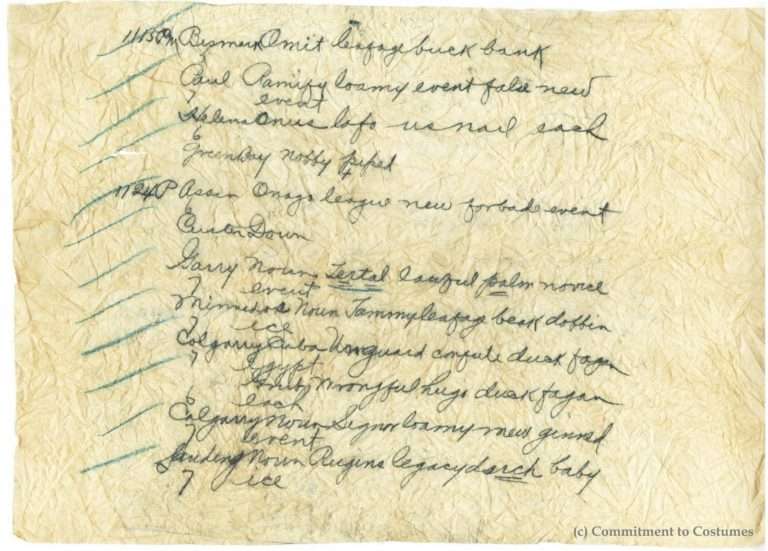 1113PM Bismark Omit leafage buck bank
Paul Ramify loamy event false new
7 event
Helena Onus lofo usnail each
6
Green Bay nobby peped
1124P Assin Onago league new forbade event
6
Custer Down
Garry Noun Tertal lawful palm novice
7 event
Minnedos Noun Jammy leafage beak dobbin
7 ice
Calgarry Cuba Unguard confute duck fagan
7 Egypt
Wrongful hugo duck fagan
each
Calgarry Noun Signor loamy mew ginned
7 event
Landing Noun Rugins legacy baby
7 ice
(c) Commitment to Costumes